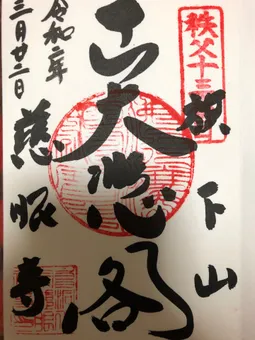 秩父十三
旗下山
大悲閣
慈眼寺
令和二年
三月廿二日